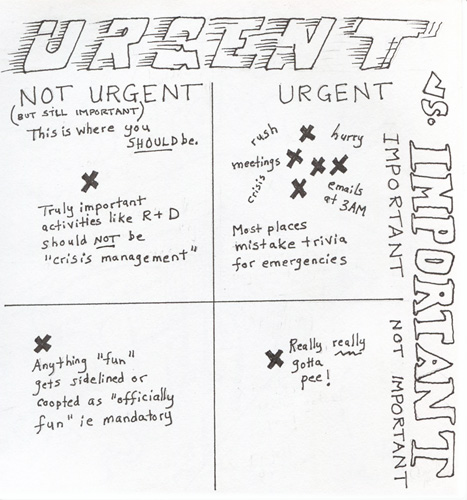 URGENT
vs. IMPORTANT
NOT URGENT
(BUT STILL IMPORTANT)
This is where you
SHOULD be.
Truly important
activities like R+D
should NOT be
"crisis management"
URGENT
rush
hurry
meetings
crisis
emails
at 3AM
Most places
mistake trivia
for emergencies
IMPORTANT
Anything "fun"
gets sidelined or
coopted as "officially
fun" ie mandatory
Really really
gotta
pee!
NOT IMPORTANT